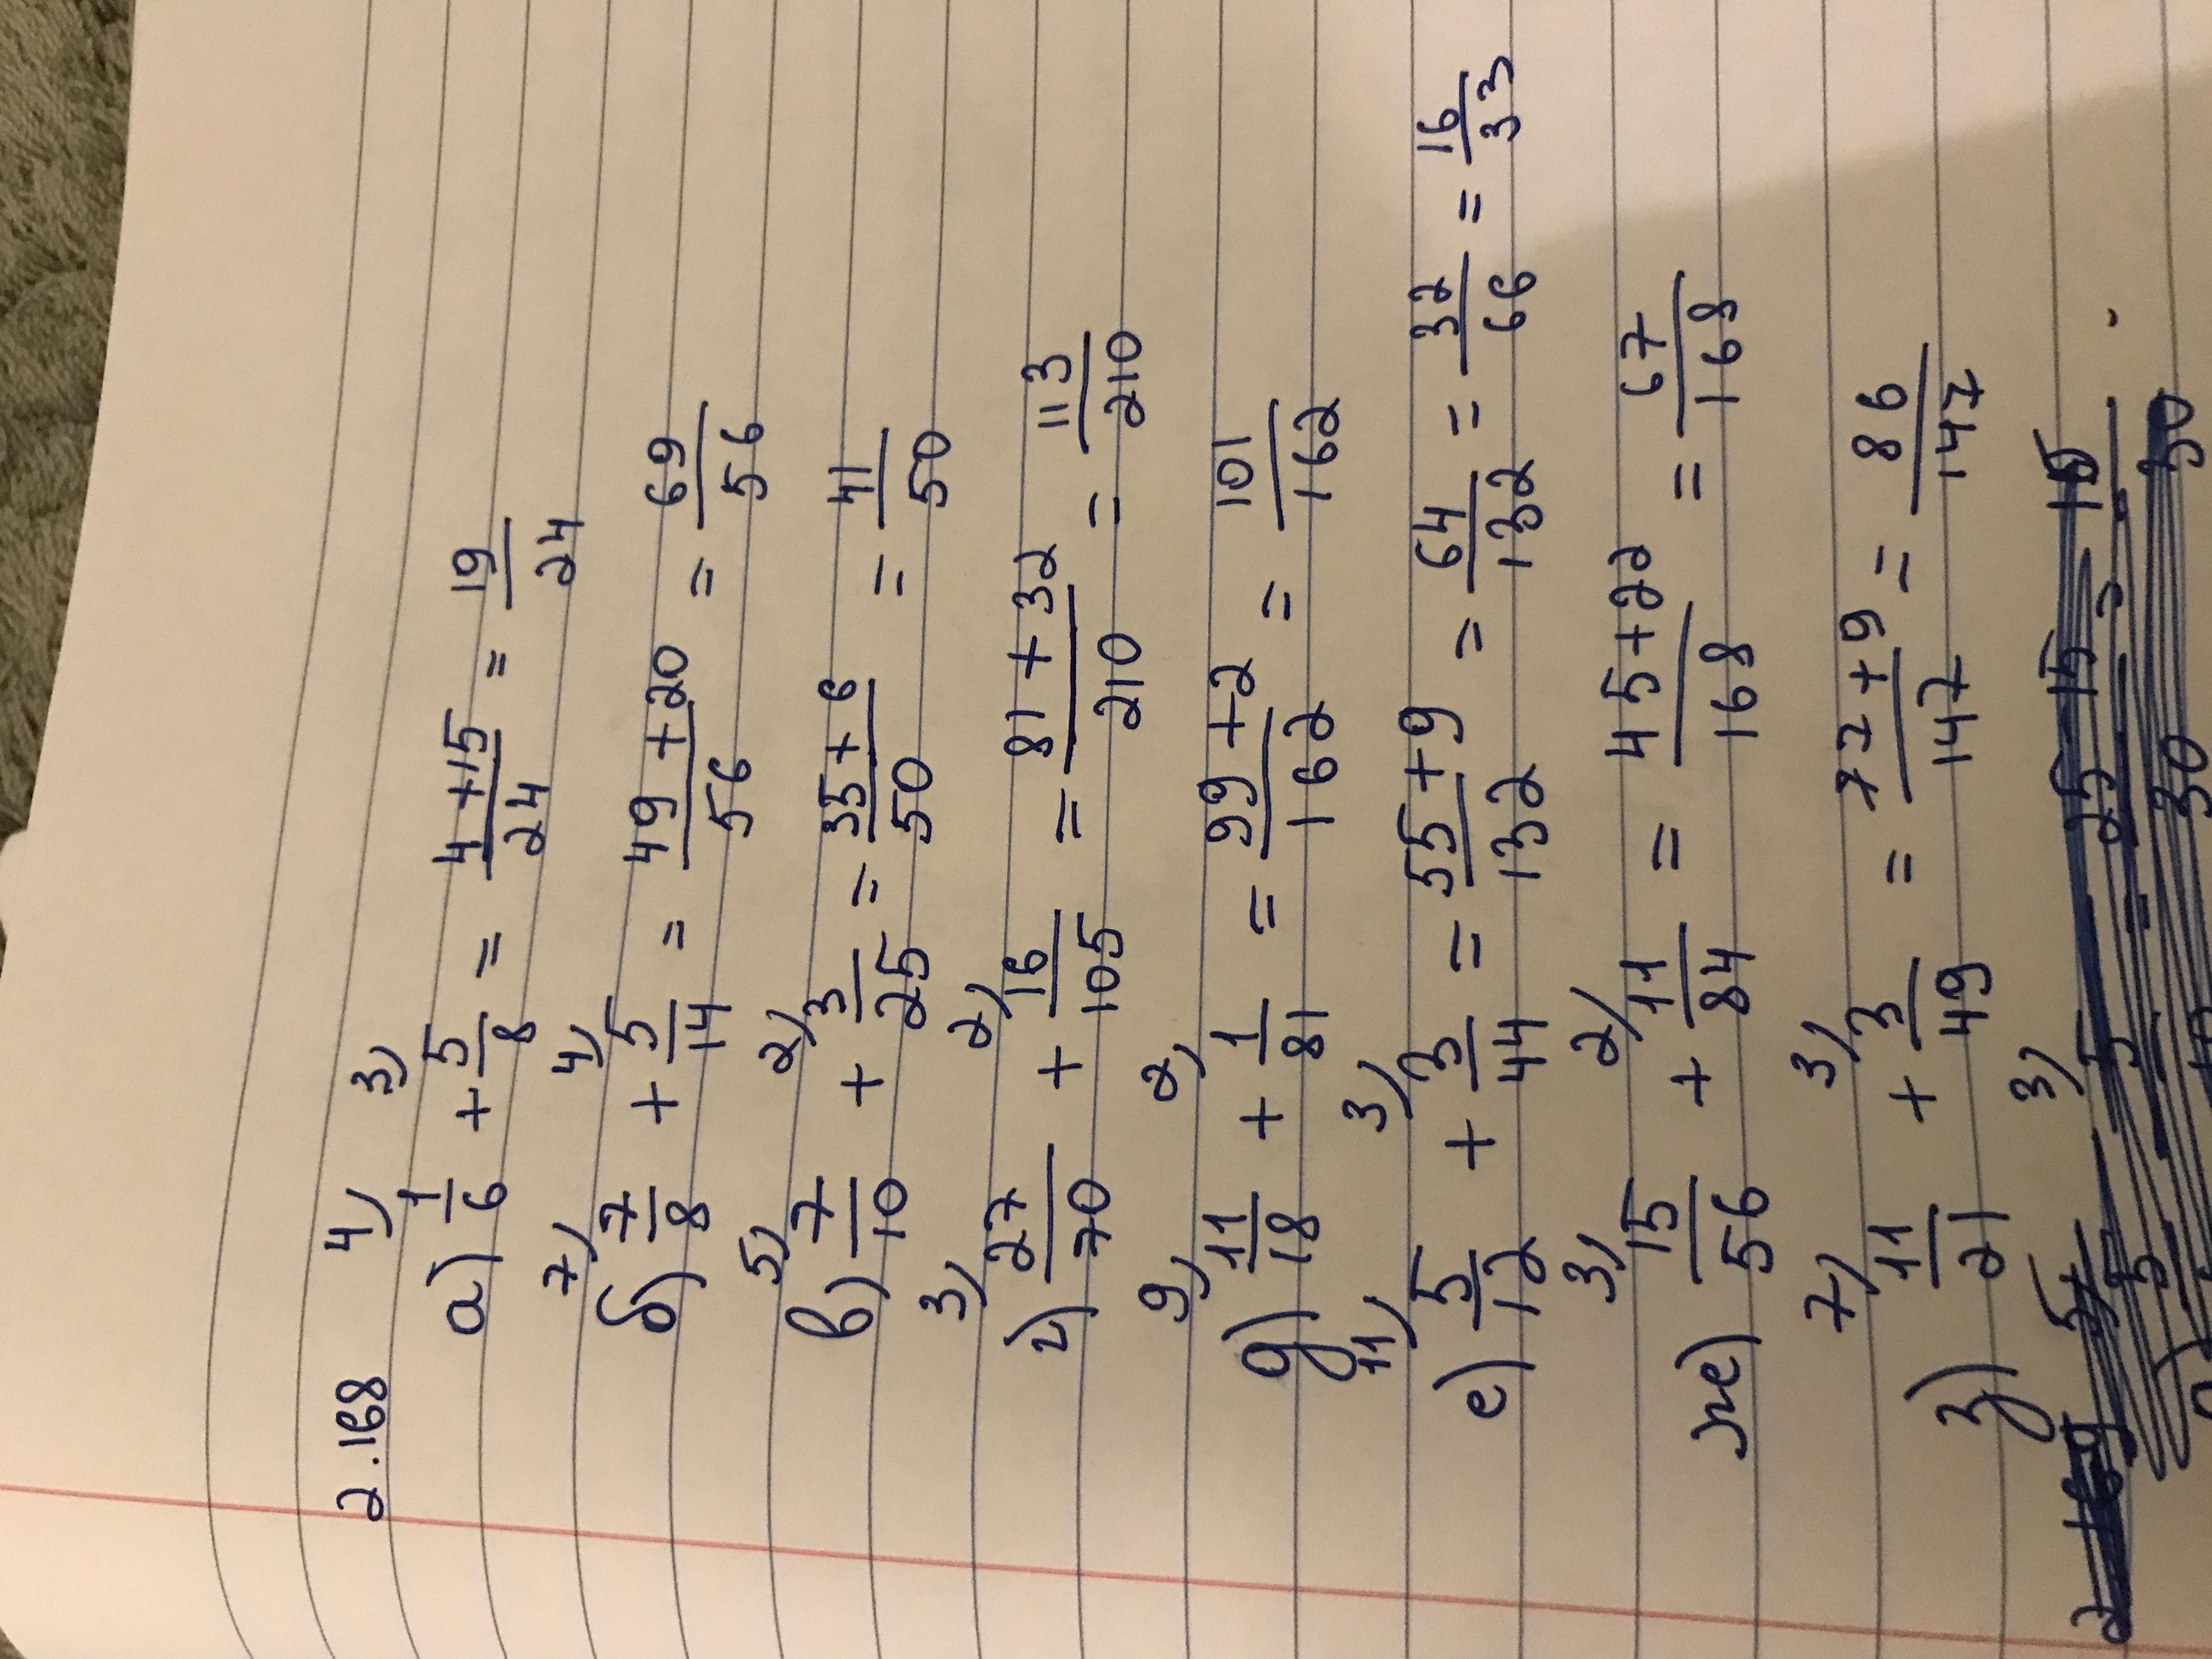 2.168
а) 4) 1/6 + 3) 5/8 = (4+15)/24 = 19/24
б) 7) 7/8 + 4) 5/14 = (49+20)/56 = 69/56
в) 5) 7/10 + 2) 3/25 = (35+6)/50 = 41/50
г) 3) 27/70 + 2) 16/105 = (81+32)/210 = 113/210
д) 9) 11/18 + 2) 1/81 = (99+2)/162 = 101/162
е) 11) 5/12 + 3) 3/44 = (55+9)/132 = 64/132 = 32/66 = 16/33
же) 3) 15/56 + 2) 11/84 = (45+22)/168 = 67/168
з) 7) 11/21 + 3) 3/49 = (77+9)/147 = 86/147